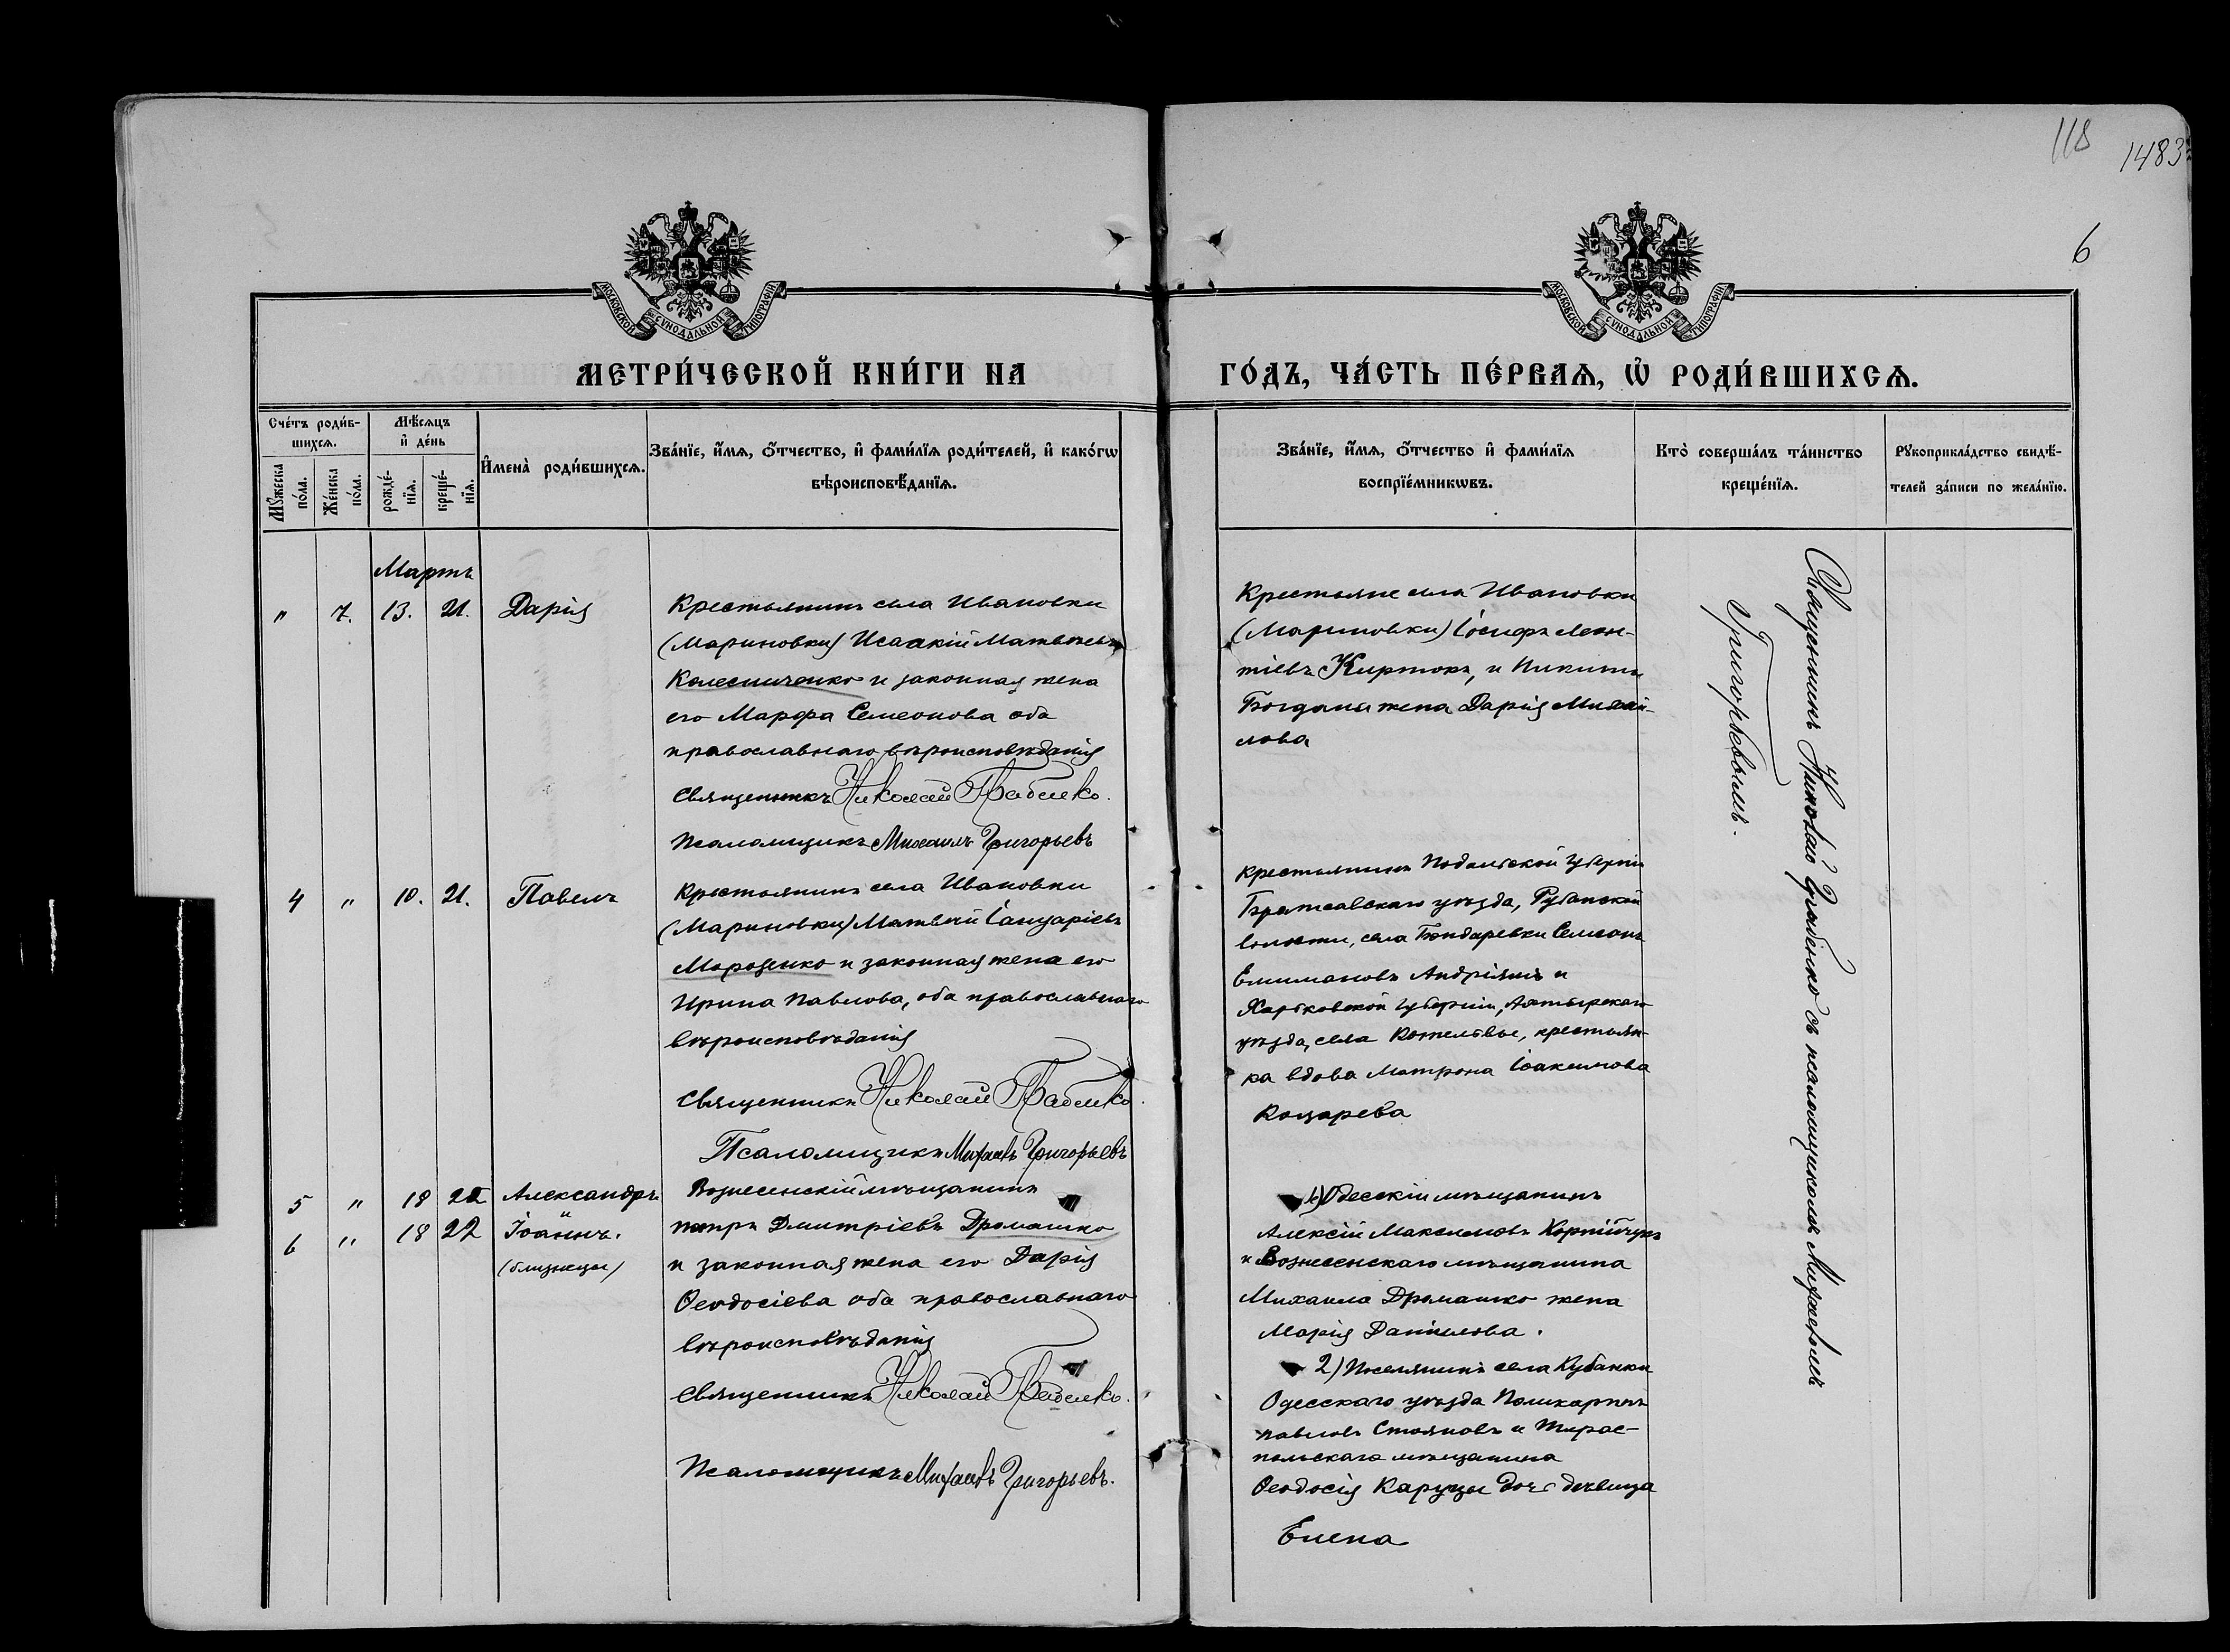 118
1483
6
МОСКОВСКОЙ СѴНОДАЛЬНОЙ ТИПОГРАФІИ
МОСКОВСКОЙ СѴНОДАЛЬНОЙ ТИПОГРАФІИ
МЕТРИ́ЧЕСКОЙ КНИ́ГИ НА
ГО́ДЪ, ЧА́СТЬ ПЕ́РВАѦ, Ѡ҆ РОДИ́ВШИХСѦ.
Сче́тъ роди́в-
шихсѧ.
Мꙋ́жеска по́ла.
Же́нска по́ла.
Мѣ́сѧцъ
и҆ де́нь
рожде́-
нїѧ.
креще́-
нїѧ.
И҆мена̀ роди́вшихсѧ.
Зва́нїе, и҆́мѧ, ѻ҆́тчество, и҆ фами́лїѧ роди́телей, и҆ како́гѡ
вѣроисповѣ́данїѧ.
Зва́нїе, и҆́мѧ, ѻ҆́тчество и҆ фами́лїѧ
воспрїе́мникѡвъ.
Кто̀ соверша́лъ та́инство
креще́нїѧ.
Рꙋкоприкла́дство свидѣ́-
телей за́писи по жела́нїю.
Мартъ
" 7. 13. 21. Дарія
Крестьянинъ села Ивановки
(Мариновки) Исаакій Матвѣевъ
Колесниченко и законная жена
его Марфа Семеонова оба
православнаго вѣроисповѣданія
Священникъ Николай
Псаломщикъ Михаилъ Григорьевъ
Крестьяне села Ивановки
(Мариновки) Іосифъ Леон-
тіевъ Киртока, и Никиты
Богданы жена Дарія Михай-
лова
4 " 10. 21. Павелъ
Крестьянинъ села Ивановки
(Мариновки) Матвѣй Іануаріевъ
Морозенко и законная жена его
Ирина Павлова, оба православнаго
вѣроисповѣданія
Священникъ Николай
Псаломщикъ Михаилъ Григорьевъ
Крестьянинъ Подольской губерніи
Брацлавскаго уѣзда,
волости, села Бондаревки Семеонъ
и
Харьковской губерніи, Ахтырскаго
уѣзда, села Котельвы, крестьян-
ка вдова Матрона Іоакимова
Коцарева
5 " 18 22 Александръ
6 " 18 22 Іоаннъ.
(близнецы)
Вознесенскій мѣщанинъ
Петръ Дмитріевъ Дромашко
и законная жена его Дарія
Ѳеодосіева оба православнаго
вѣроисповѣданія
Священникъ Николай
Псаломщикъ Михаилъ Григорьевъ.
1) Одесскій мѣщанинъ
Алексій Максимовъ
и Вознесенскаго мѣщанина
Михаила Дромашко жена
Марія Даніилова.
2) Поселянинъ села Кубанки
Одесскаго уѣзда Поликарпъ
Павловъ Стояновъ и Тирас-
польскаго мѣщанина
Ѳеодосія Каруцы дочь дѣвица
Елена
Священникъ Николай съ псаломщикомъ Михаиломъ
Григорьевымъ.